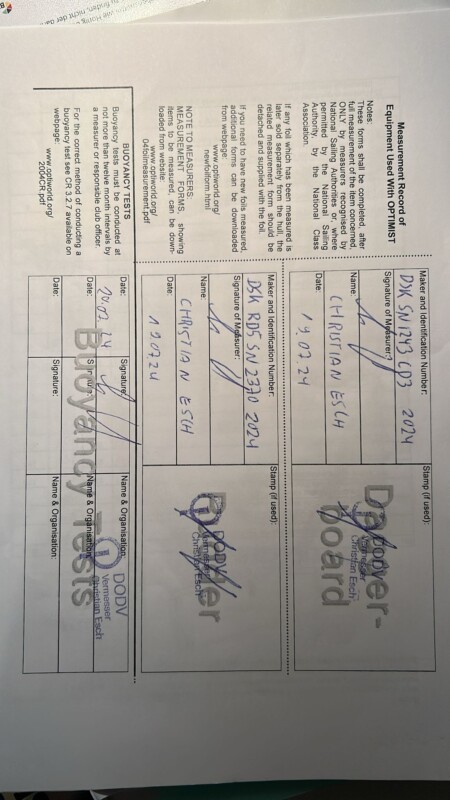 Measurement Record of
Equipment Used With OPTIMIST
Notes:
These forms shall be completed, after
full measurement of the item concerned,
ONLY by measurers recognised by
National Sailing Authorities or, where
permitted by the National Sailing
Authority, by the National Class
Association.
If any foil which has been measured is
later sold separately from the hull, the
related measurement form should be
detached and supplied with the foil.
If you need to have new foils measured,
additional forms can be downloaded
from webpage:
www.optiworld.org/
newfoilform.html
NOTE TO MEASURERS:
MEASUREMENT FORMS, showing
items to be measured, can be down-
loaded from website:
www.optiworld.org/
04foilmeasurement.pdf
BUOYANCY TESTS
Buoyancy tests must be conducted at
not more than twelve month intervals by
a measurer or responsible club officer.
For the correct method of conducting a
buoyancy test see CR 3.2.7 available on
webpage:
www.optiworld.org/
2004CR.pdf
Maker and Identification Number:
DSK SN 1243 CD3 2024
Signature of Measurer:
Name:
CHRISTIAN ESCH
Date:
19.07.24
Stamp (if used):
Dagger-
board
DODV
Vermesser
Christian Esch
Maker and Identification Number:
DSK RD5 SN 2330 2024
Signature of Measurer:
Name:
CHRISTIAN ESCH
Date:
19.07.24
Stamp (if used):
Rudder
DODV
Vermesser
Christian Esch
Buoyancy Tests
Date:
20.07.24
Signature:
Name & Organisation:
DODV
Vermesser
Christian Esch
Date:
Signature:
Name & Organisation:
Date:
Signature:
Name & Organisation: